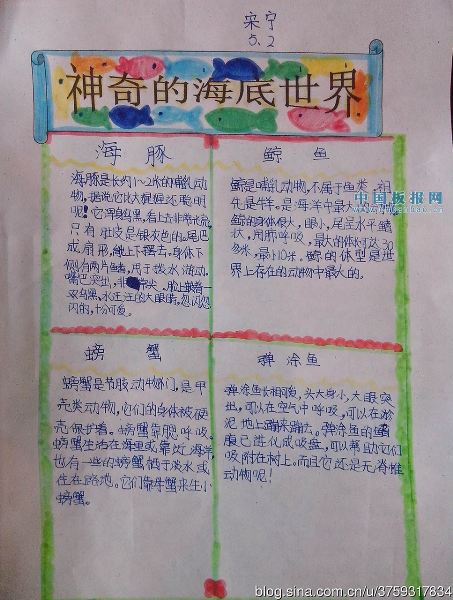 宋宁
5.2
神奇的海底世界
海豚
海豚是长约1~2米的哺乳动
物,据说它比大猩猩还聪明
呢!它浑身乌黑,看上去非常光滑,
只有肚皮是银灰色的。尾巴
成扇形,能上下摆去,身体下
侧有两片鳍,用于拨水游动。
嘴巴突出,非常尖。脸上嵌着一
双乌黑,水汪汪的大眼睛,忽闪忽
闪的,十分可爱。
鲸鱼
鲸是哺乳动物,不属于鱼类,祖
先是牛羊。是海洋中最大的动物
鲸的身体很大,眼小,尾呈水平鳍
状,用肺呼吸,最大的体长可达30
多米,最小10米。鲸的体型是世
界上存在的动物中最大的。
中国板报网
螃蟹
螃蟹是节肢动物门,是甲
壳类动物,它们的身体被硬
壳保护着。螃蟹靠腮呼吸。
螃蟹生活在海里或靠近海洋
也有一些的螃蟹栖于淡水或
住在路地。它们靠母蟹来生小
螃蟹。
弹涂鱼
弹涂鱼长相可爱,头大身小,大眼突
出,可以在空气中呼吸,可以在淤
泥地上蹦来蹦去。弹涂鱼的鱼
腹已进化成吸盘,可以帮助它们
吸附在树上。而且它还是无脊椎
动物呢!
blog.sina.com.cn/u/3759317834